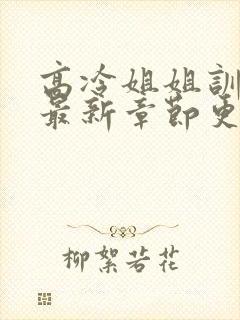 高冷姐姐訓
最新章節更
柳絮若花